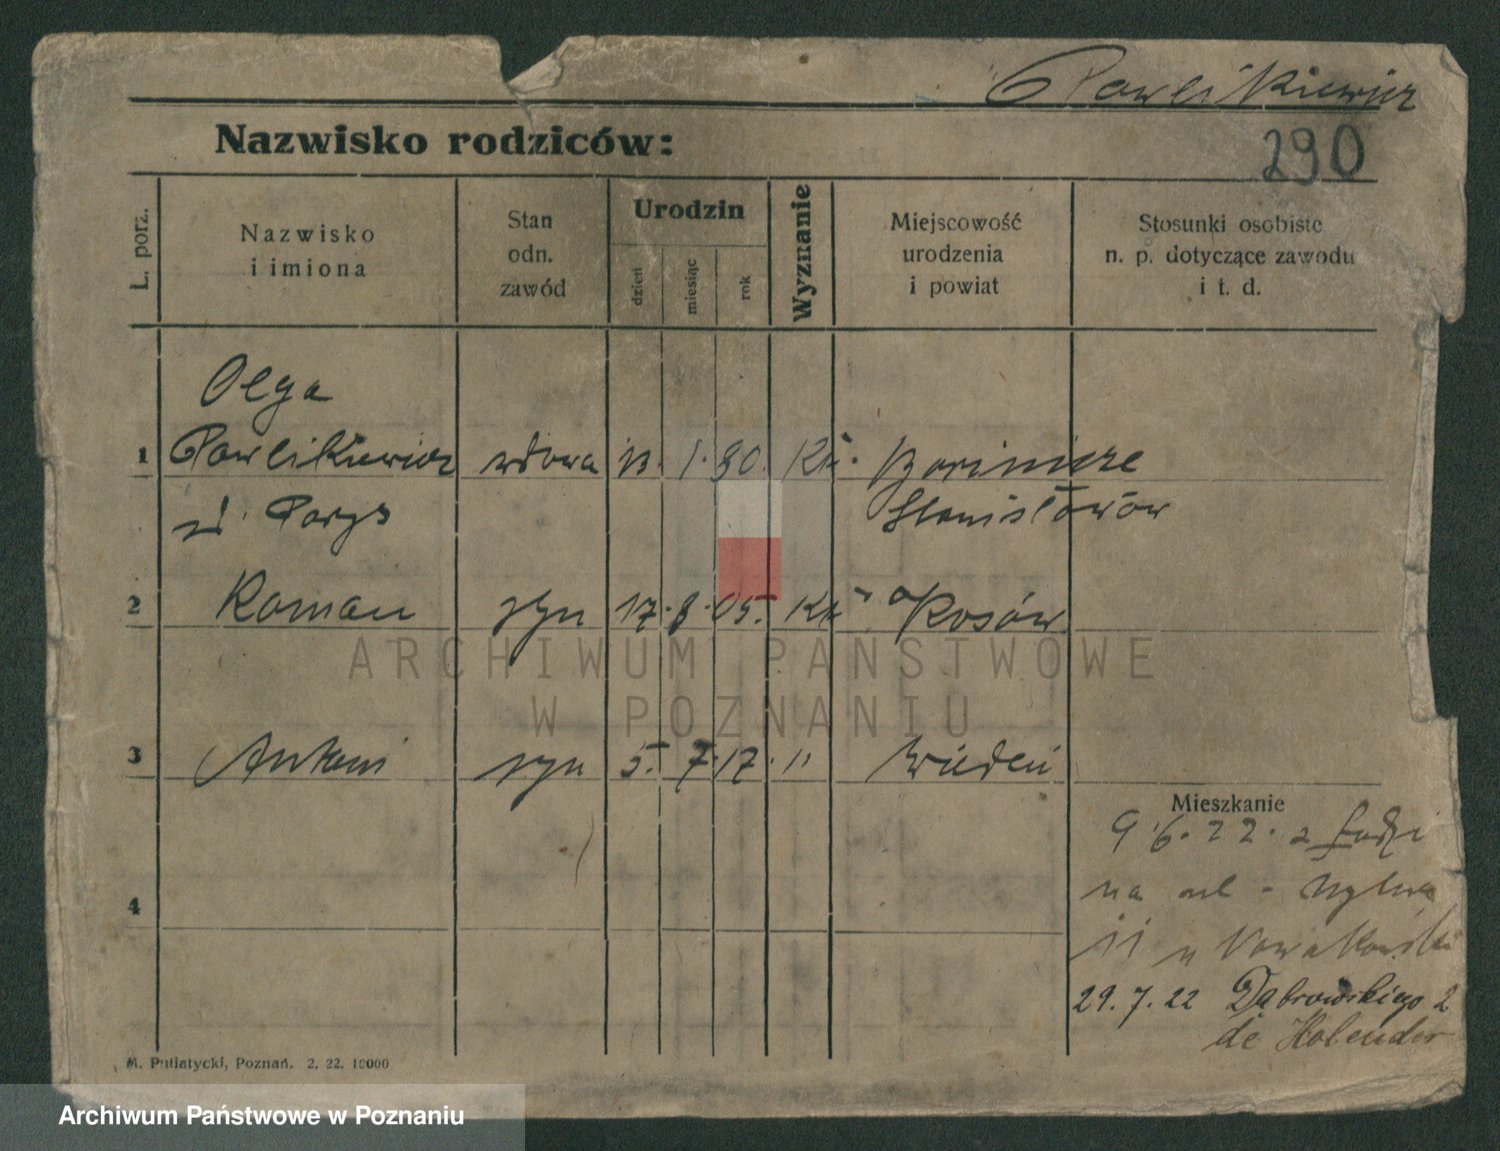 Pawlikiewicz
Nazwisko rodziców:
290
L. porz.
Nazwisko
i imiona
Stan
odn.
zawód
Urodzin
dzień
miesiąc
rok
Wyznanie
Miejscowość
urodzenia
i powiat
Stosunki osobiste
n. p. dotyczące zawodu
i t. d.
Olga
1 Pawlikiewicz wdowa 13. 1. 80. Kat.
z d. Parys Stanisławów
2 Roman syn 17. 8. 05. Kat Kosów
ARCHIWUM PAŃSTWOWE
W POZNANIU
3 Antoni syn 5. 7. 17. " Wiedeń
Mieszkanie
9.6.22. z Łodzi
na ul.
11 u Nowakowski
4
29.7.22 Dąbrowskiego 2
de Holender
M. Putiatycki, Poznań. 2. 22. 10000
Archiwum Państwowe w Poznaniu